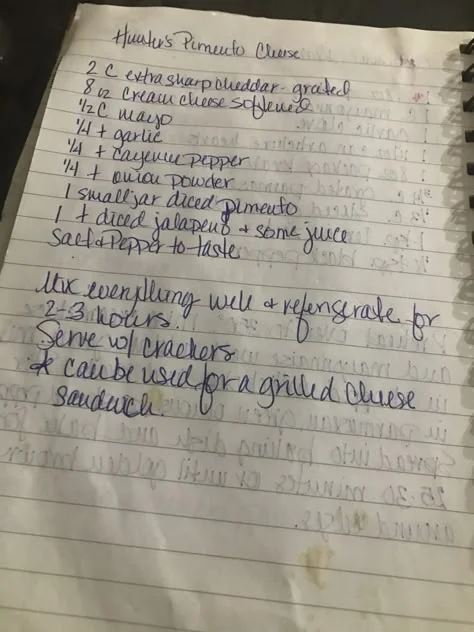 Hunter's Pimento Cheese
2 C extra sharp cheddar - grated
8 oz Cream cheese softened
1/2 C mayo
1/4 t garlic
1/4 t cayenne pepper
1/4 t onion powder
1 small jar diced pimento
1 t diced jalapeno + some juice
Salt & Pepper to taste
Mix everything well & refrigerate for
2-3 hours.
Serve w/ crackers
* can be used for a grilled cheese
sandwich